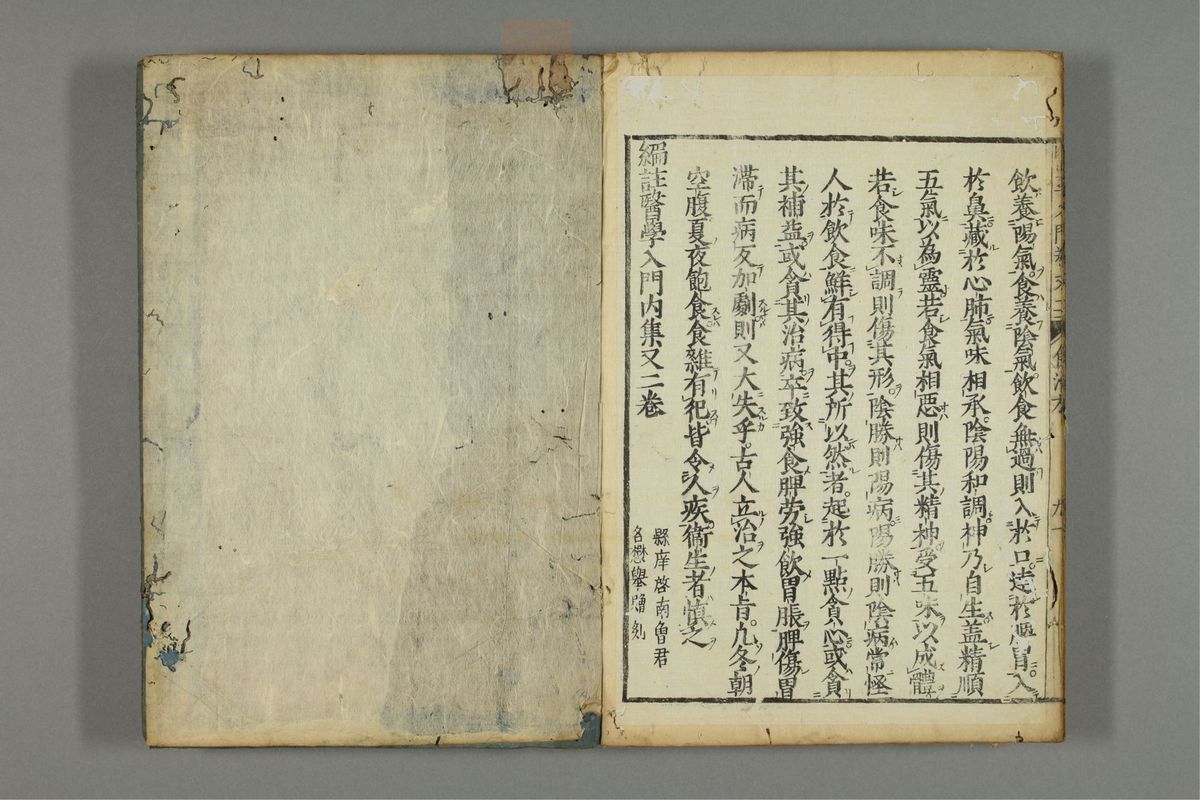 飲養陽氣食養陰氣飲食無過則入於口達於脾胃入
於鼻藏於心肺氣味相承陰陽和調神乃自生盖精順
五氣以為靈若食氣相惡則傷其精神受五味以成體
若食味不調則傷其形陰勝則陽病陽勝則陰病常怪
人於飲食鮮有得中其所以然者起於一點貪心或貪
其補益或貪其治病卒致強食脾劳強飲胃脹脾傷胃
滯而病反加劇則又大失乎古人立治之本旨凢冬朝
空腹夏夜飽食食雜有犯皆令人疾衞生者慎之
縣庠啓南魯君
名懋舉贈刻
編註醫學入門内集又二卷